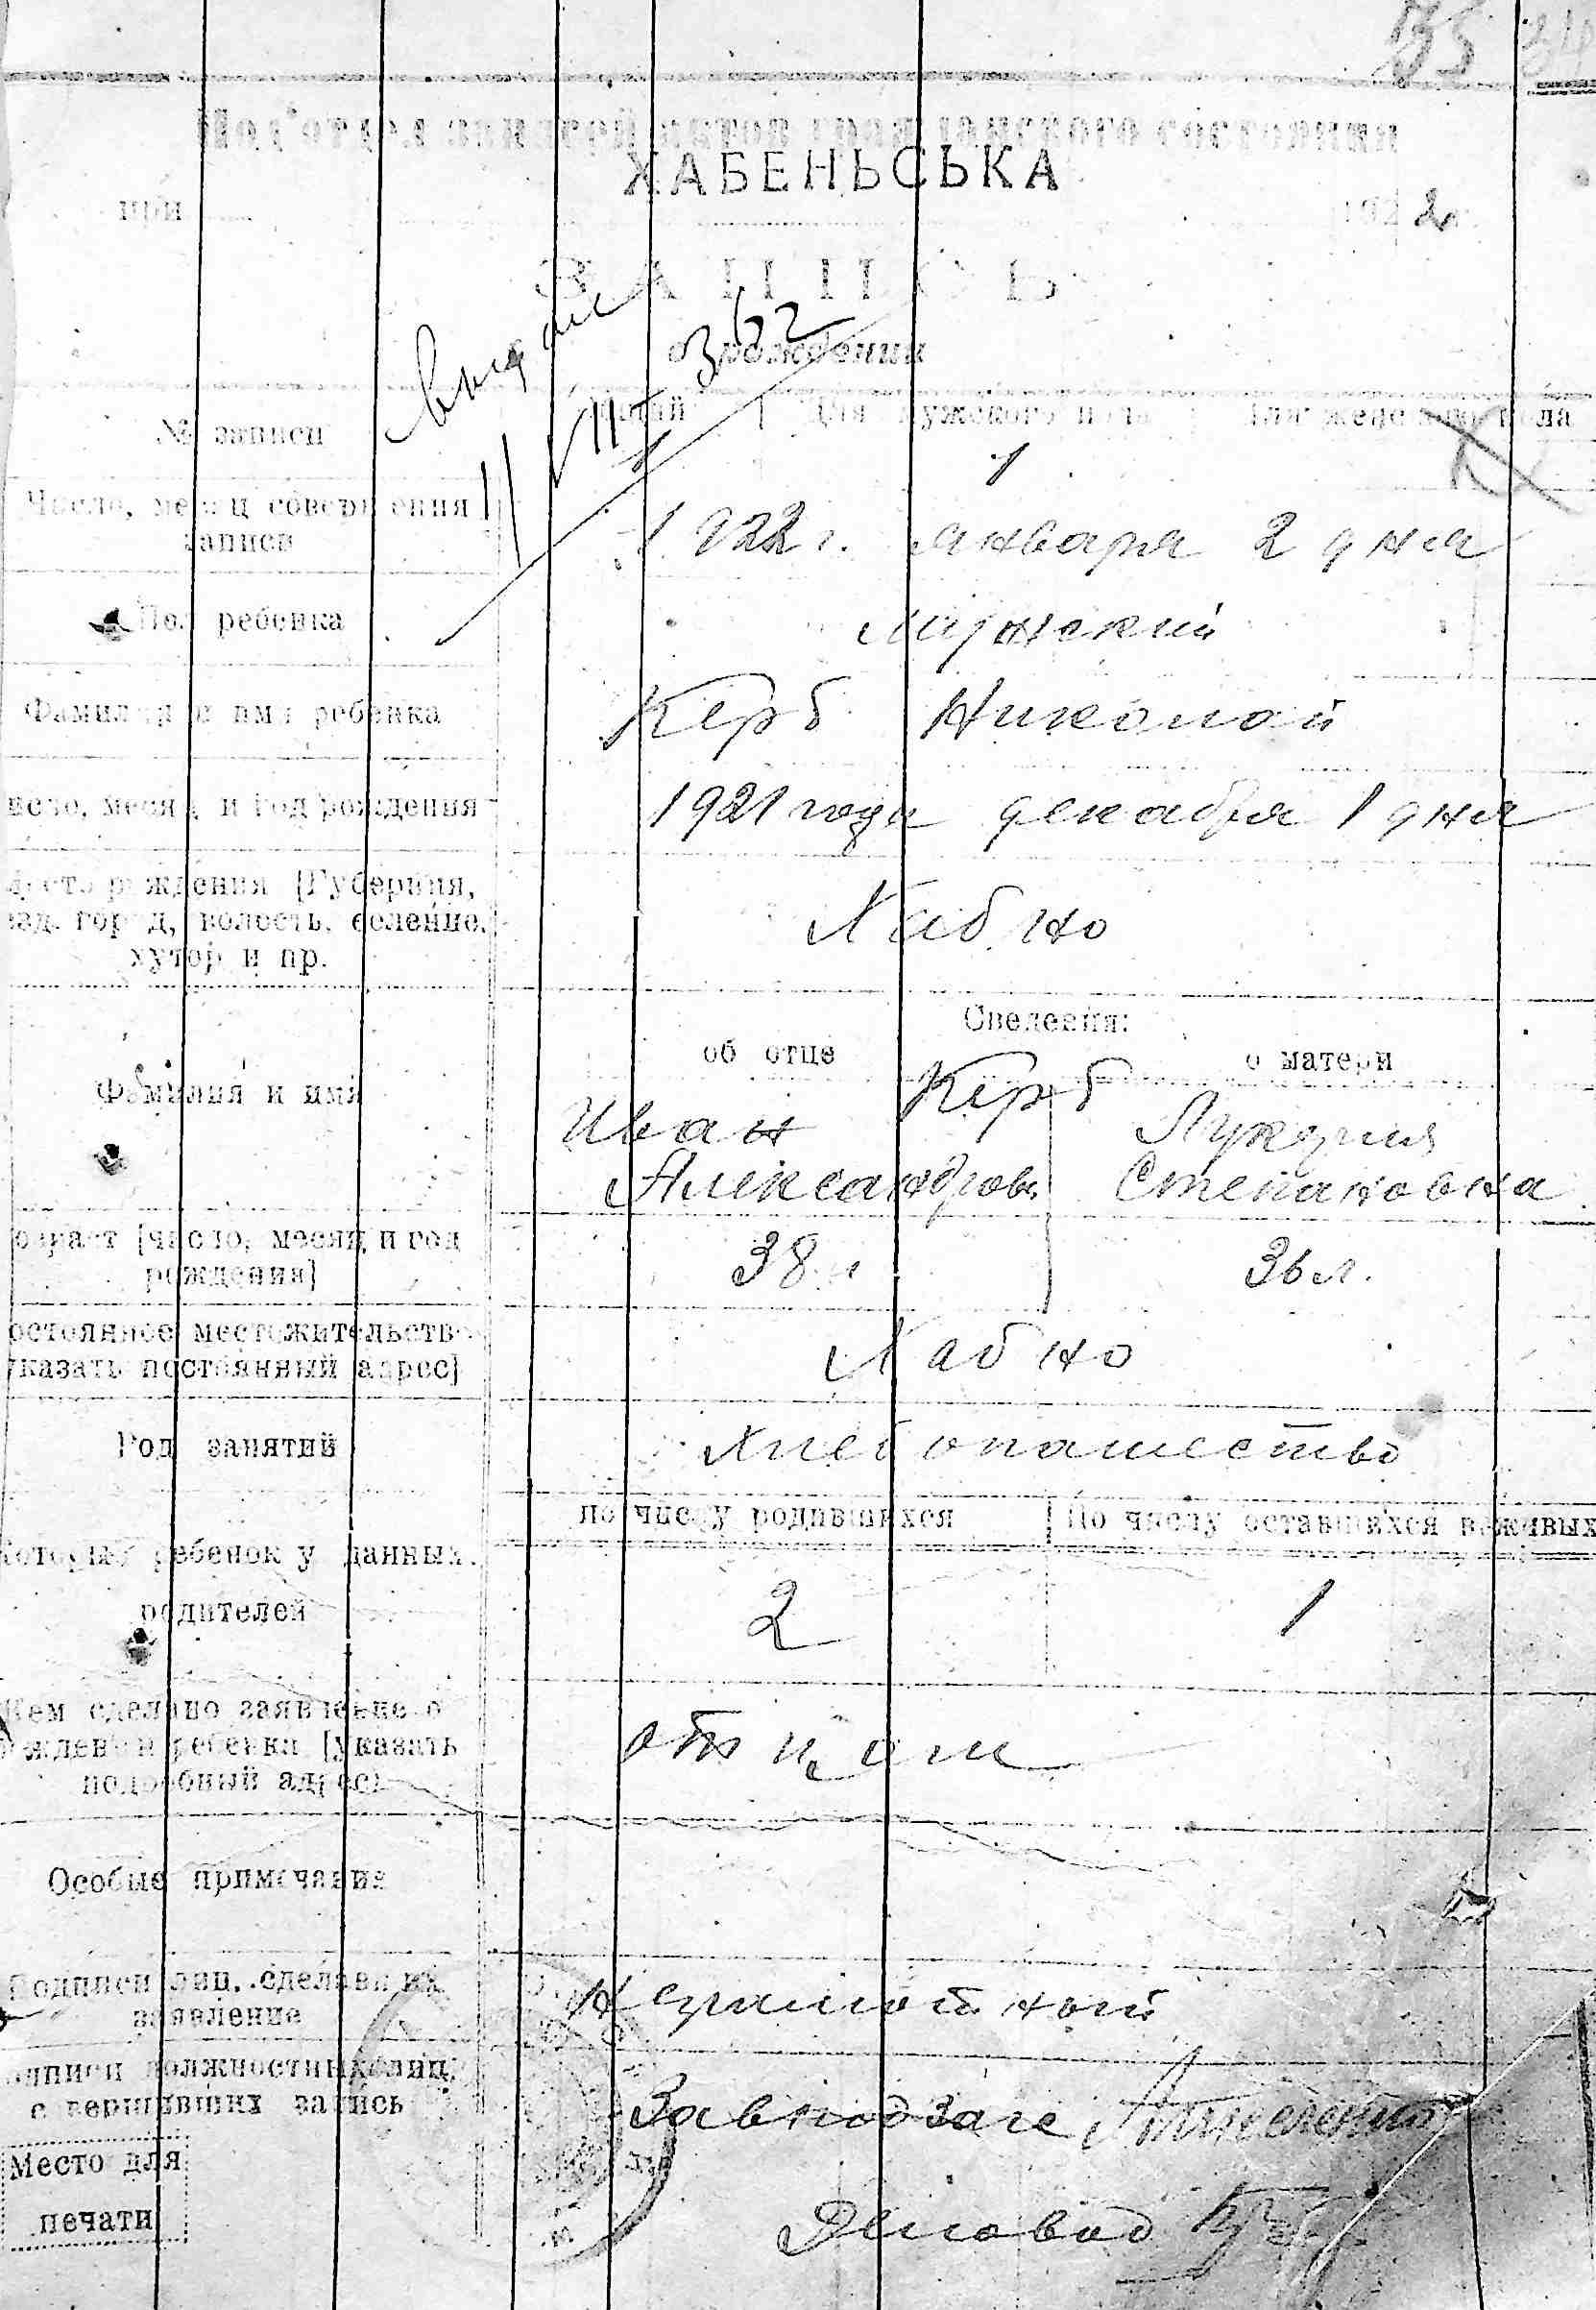 35 34
Под'отдел записей актов гражданского состояния
ХАБЕНЬСЬКА
при 1922 г.
ЗАПИСЬ
о рождении
Выдан
11/VII 362
№ записи
Общий | Для мужского пола | Для женского пола
1 1
Число, месяц совершения
записи
1922 г. января 2 дня
Пол ребенка
Мужский
Фамилия и имя ребенка
Керб Николай
число, месяц и год рождения
1921 года декабря 1 дня
Место рождения [Губерния,
уезд, город, волость, селение,
хутор и пр.
Хабно
Сведения:
об отце
о матери
Фамилия и имя
Керб
Иван
Лукерия
Александров
Степановна
Возраст [число, месяц и год
рождения]
38 л
36 л.
Постоянное местожительство
[указать постоянный адрес]
Хабно
Род занятий
Хлебопашество
по числу родившихся | По числу оставшихся в живых
Который ребенок у данных
родителей
2 1
Кем сделано заявление о
рождении ребенка [указать
подробный адрес]
отцом
Особые примечания
Подписи лиц, сделавших
заявление
Неграмотный
Подписи должностных лиц,
совершивших запись
Завподзагс
Место для
печати
Деловод